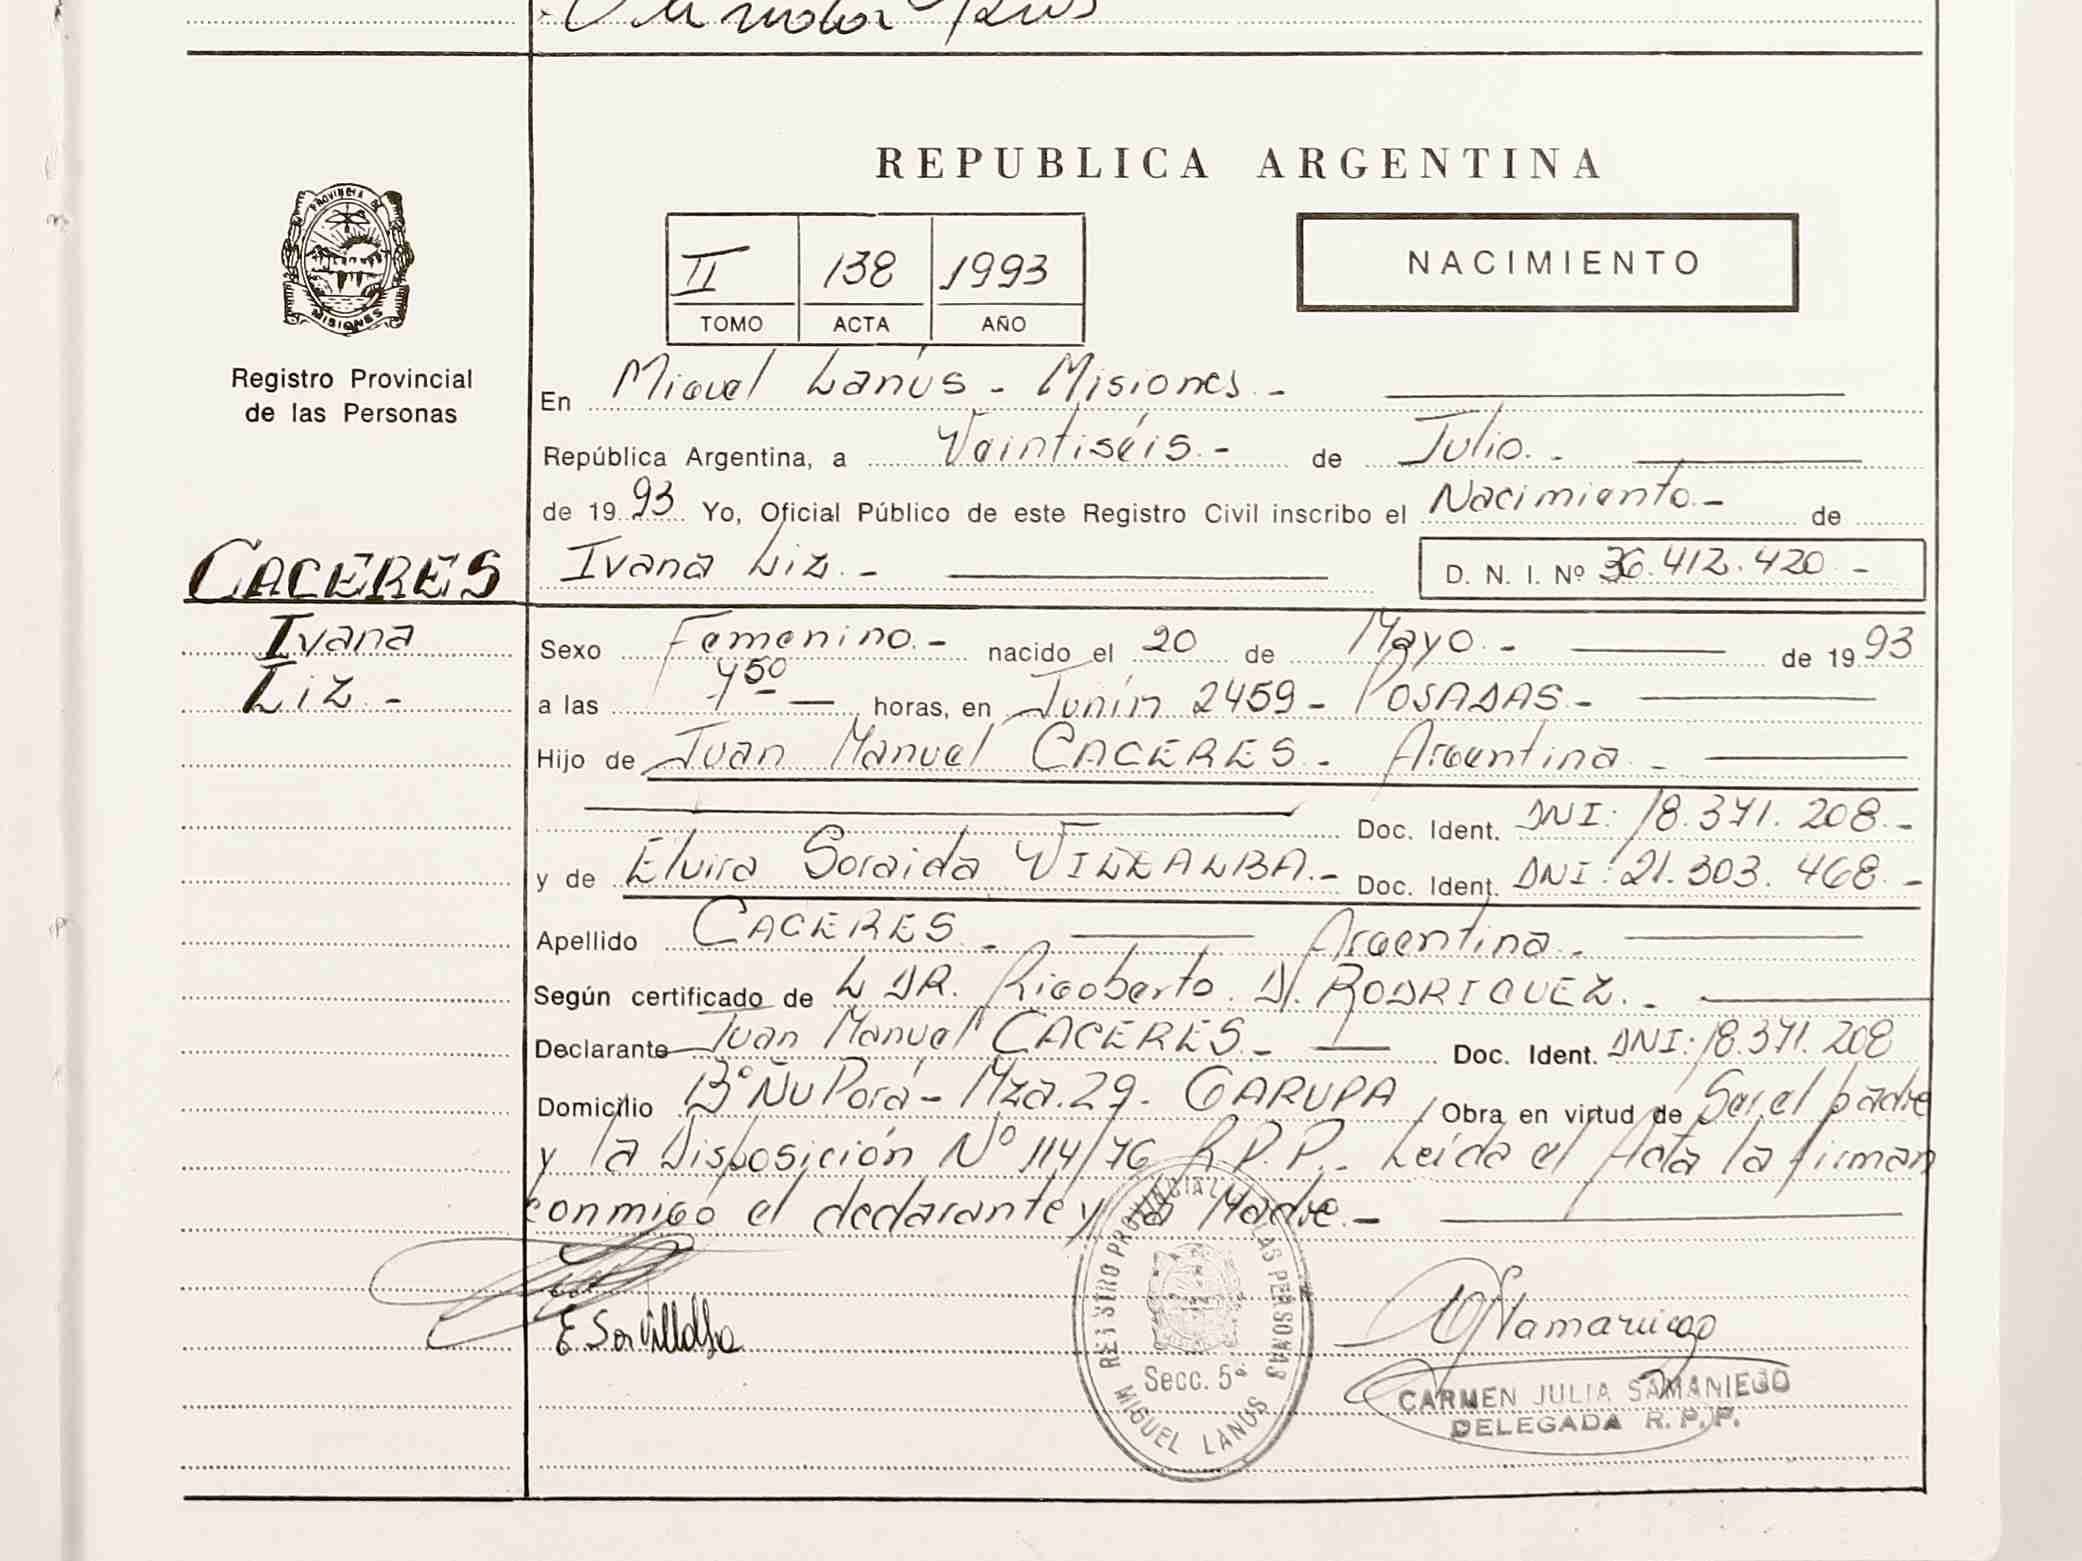 REPUBLICA ARGENTINA
PROVINCIA DE
MISIONES
Registro Provincial
de las Personas
II 138 1993
TOMO ACTA AÑO
NACIMIENTO
En Miguel Lanús - Misiones -
República Argentina, a Veintiséis - de Julio. -
de 1993 Yo, Oficial Público de este Registro Civil inscribo el Nacimiento - de
CACERES
Ivana
Liz. -
Ivana Liz. - D. N. I. Nº 36.412.420 -
Sexo Femenino. - nacido el 20 de Mayo. - de 1993
a las 7 50 horas, en Junín 2459 - POSADAS. -
Hijo de Juan Manuel CACERES. - Argentina -
Doc. Ident. DNI: 18.371.208. -
y de Elvira Soraida VILLALBA. - Doc. Ident. DNI: 21.303.468. -
Apellido CACERES - Argentina. -
Según certificado de L DR. Rigoberto D. RODRIGUEZ. -
Declarante Juan Manuel CACERES - Doc. Ident. DNI: 18.371.208
Domicilio Bº Ñu Porá - Mza. 29 - GARUPA Obra en virtud de Ser el padre
y la Disposición Nº 114/76 R.P.P. - Leída el Acta la firman
conmigo el declarante y la Madre. -
E Sor Villalba
REGISTRO PROVINCIAL DE LAS PERSONAS
Secc. 5ª
MIGUEL LANUS
Samaniego
CARMEN JULIA SAMANIEGO
DELEGADA R. P. P.